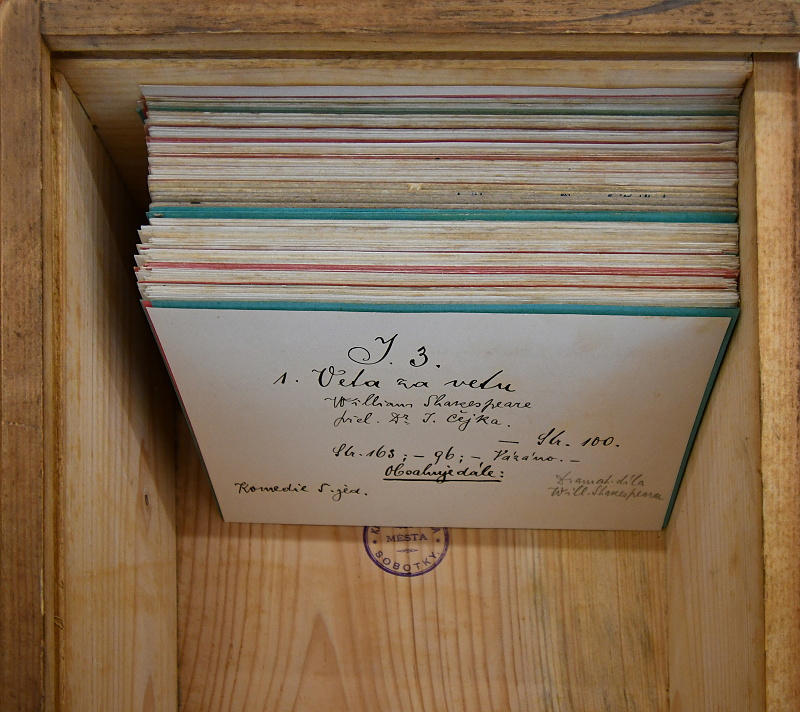 J. 3.
1. Veta za vetu
William Shakespeare
přel. Dr. J. Čejka.
— Str. 100.
Str. 163; – 96; – Vázáno. –
Obsahuje dále:
Komedie 5. jed.
Dramat. díla
Will. Shakespeara
MĚSTA
SOBOTKY